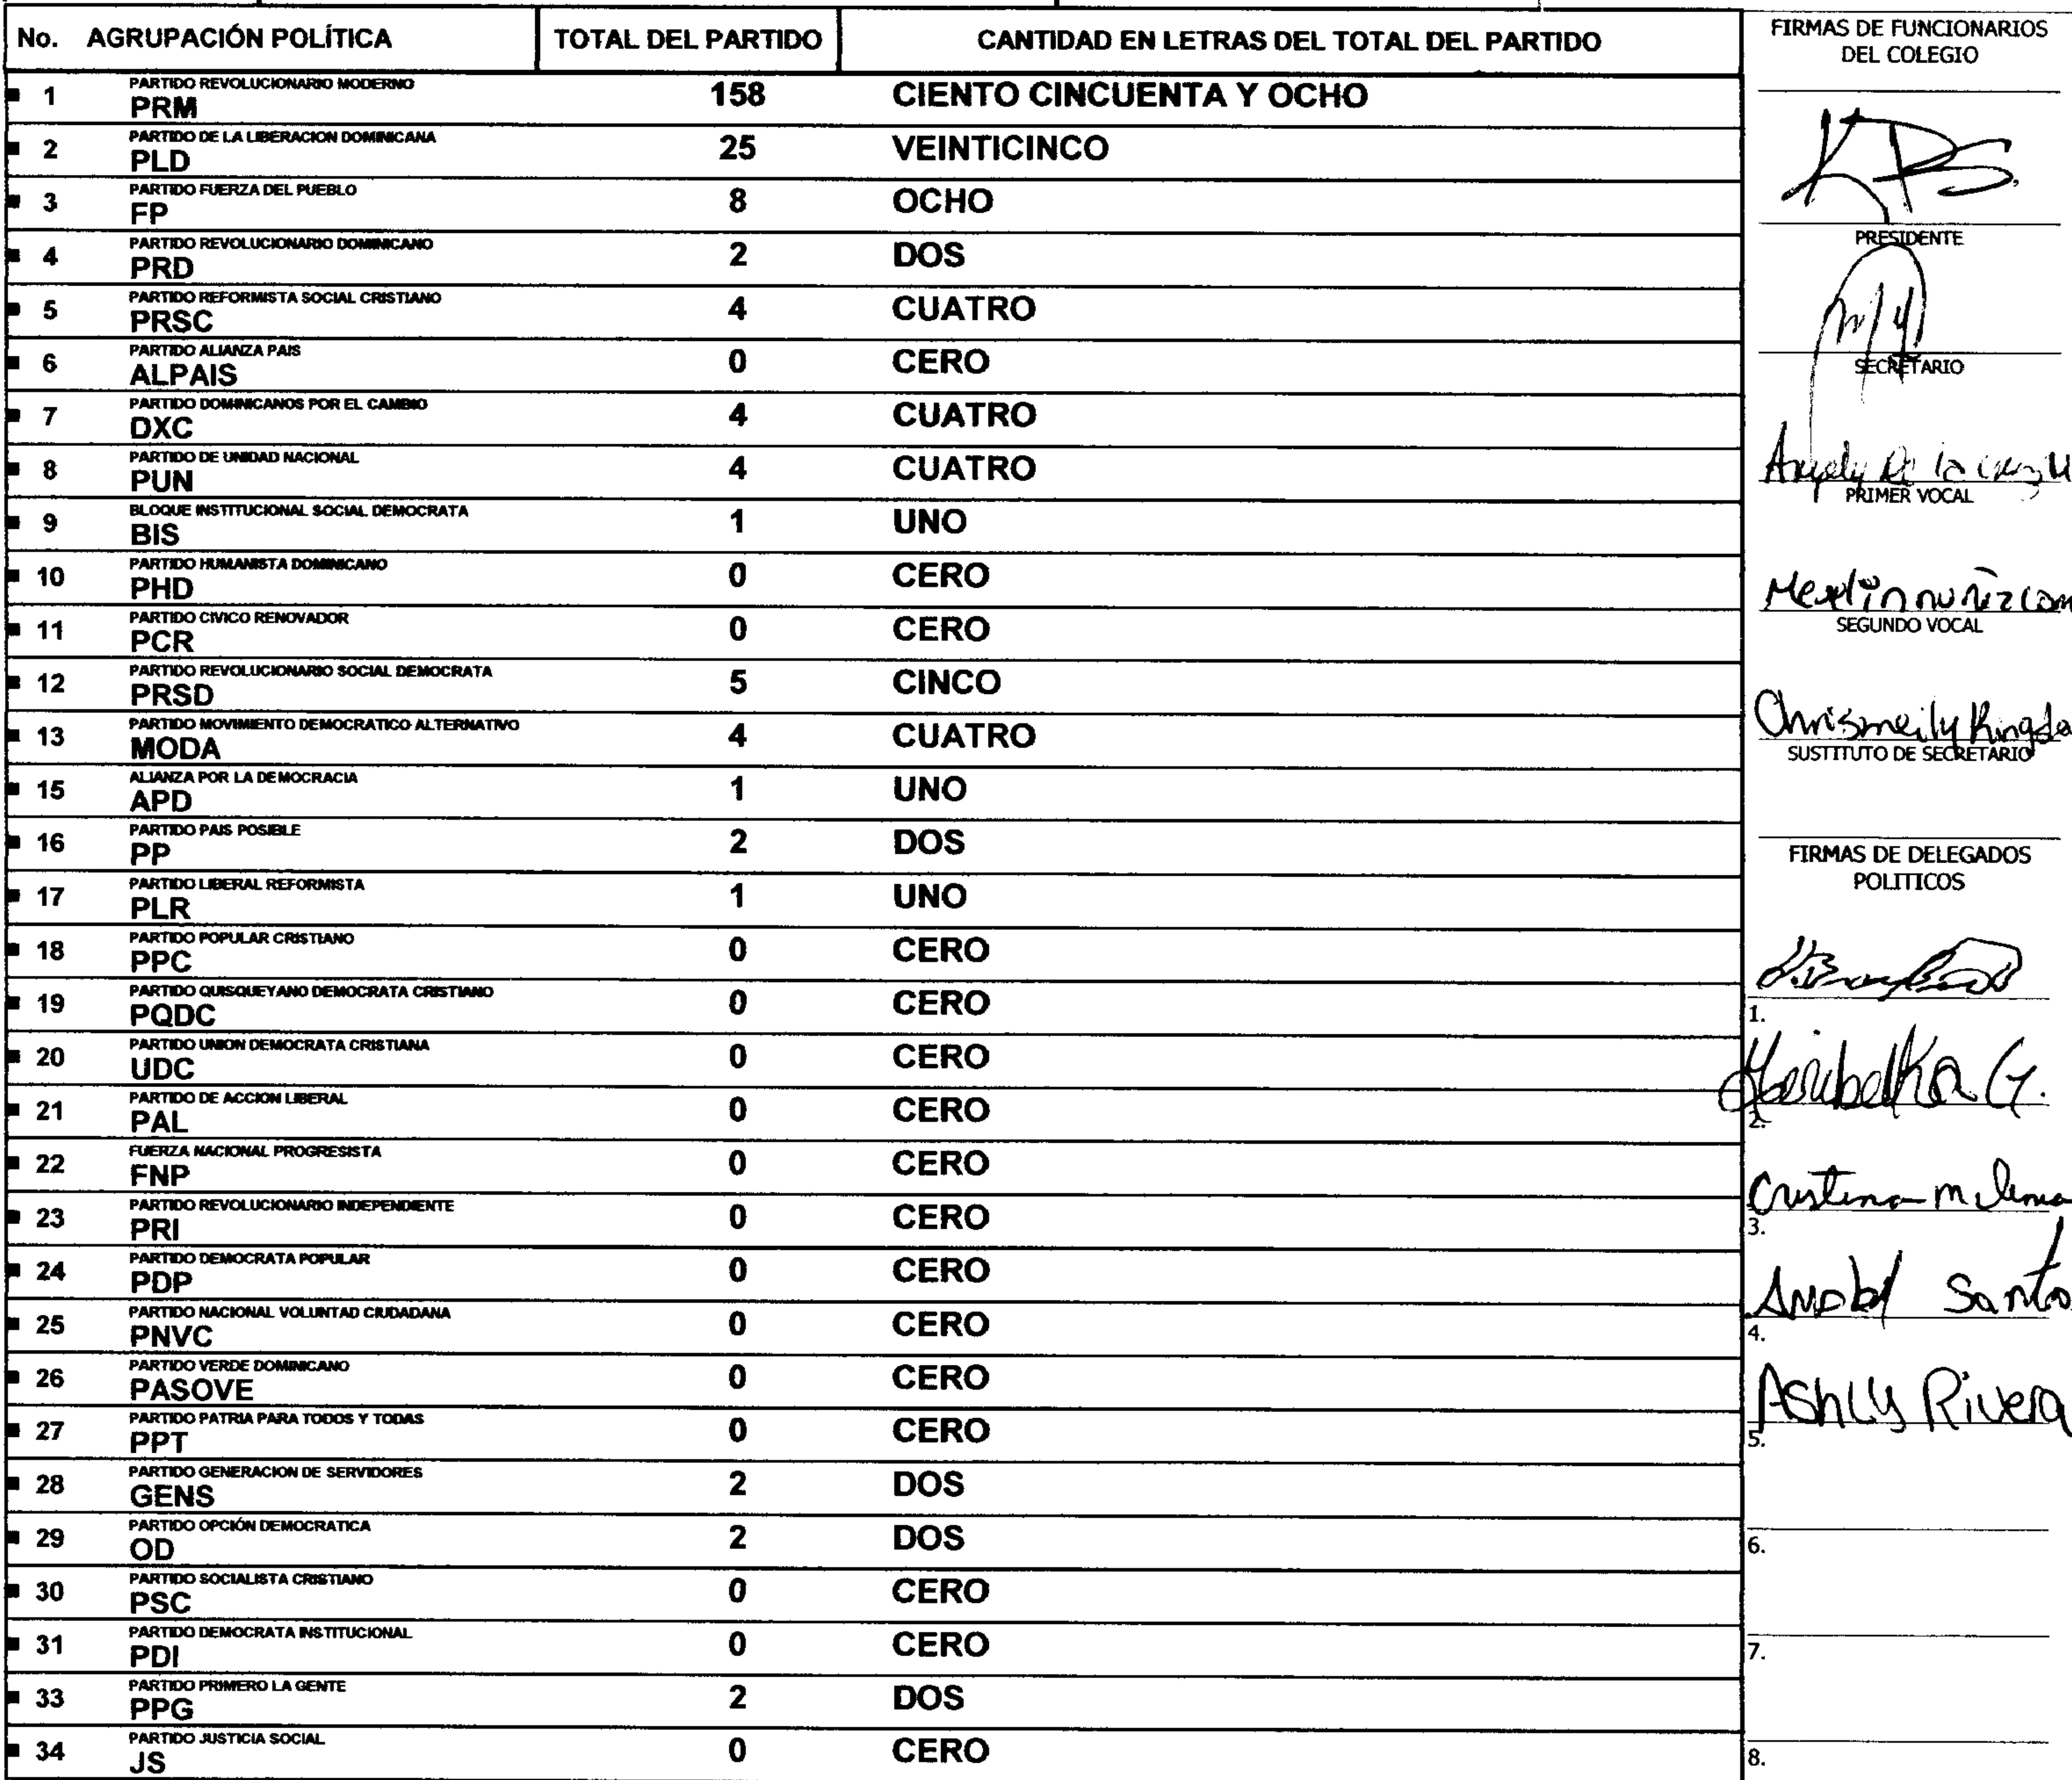 No. AGRUPACIÓN POLÍTICA TOTAL DEL PARTIDO CANTIDAD EN LETRAS DEL TOTAL DEL PARTIDO
PARTIDO REVOLUCIONARIO MODERNO
1 PRM 158 CIENTO CINCUENTA Y OCHO
PARTIDO DE LA LIBERACION DOMINICANA
2 PLD 25 VEINTICINCO
PARTIDO FUERZA DEL PUEBLO
3 FP 8 OCHO
PARTIDO REVOLUCIONARIO DOMINICANO
4 PRD 2 DOS
PARTIDO REFORMISTA SOCIAL CRISTIANO
5 PRSC 4 CUATRO
PARTIDO ALIANZA PAIS
6 ALPAIS 0 CERO
PARTIDO DOMINICANOS POR EL CAMBIO
7 DXC 4 CUATRO
PARTIDO DE UNIDAD NACIONAL
8 PUN 4 CUATRO
BLOQUE INSTITUCIONAL SOCIAL DEMOCRATA
9 BIS 1 UNO
PARTIDO HUMANISTA DOMINICANO
10 PHD 0 CERO
PARTIDO CIVICO RENOVADOR
11 PCR 0 CERO
PARTIDO REVOLUCIONARIO SOCIAL DEMOCRATA
12 PRSD 5 CINCO
PARTIDO MOVIMIENTO DEMOCRATICO ALTERNATIVO
13 MODA 4 CUATRO
ALIANZA POR LA DEMOCRACIA
15 APD 1 UNO
PARTIDO PAIS POSIBLE
16 PP 2 DOS
PARTIDO LIBERAL REFORMISTA
17 PLR 1 UNO
PARTIDO POPULAR CRISTIANO
18 PPC 0 CERO
PARTIDO QUISQUEYANO DEMOCRATA CRISTIANO
19 PQDC 0 CERO
PARTIDO UNION DEMOCRATA CRISTIANA
20 UDC 0 CERO
PARTIDO DE ACCION LIBERAL
21 PAL 0 CERO
FUERZA NACIONAL PROGRESISTA
22 FNP 0 CERO
PARTIDO REVOLUCIONARIO INDEPENDIENTE
23 PRI 0 CERO
PARTIDO DEMOCRATA POPULAR
24 PDP 0 CERO
PARTIDO NACIONAL VOLUNTAD CIUDADANA
25 PNVC 0 CERO
PARTIDO VERDE DOMINICANO
26 PASOVE 0 CERO
PARTIDO PATRIA PARA TODOS Y TODAS
27 PPT 0 CERO
PARTIDO GENERACION DE SERVIDORES
28 GENS 2 DOS
PARTIDO OPCIÓN DEMOCRATICA
29 OD 2 DOS
PARTIDO SOCIALISTA CRISTIANO
30 PSC 0 CERO
PARTIDO DEMOCRATA INSTITUCIONAL
31 PDI 0 CERO
PARTIDO PRIMERO LA GENTE
33 PPG 2 DOS
PARTIDO JUSTICIA SOCIAL
34 JS 0 CERO
FIRMAS DE FUNCIONARIOS
DEL COLEGIO
PRESIDENTE
SECRETARIO
De la
PRIMER VOCAL
SEGUNDO VOCAL
Chrismeily
SUSTITUTO DE SECRETARIO
FIRMAS DE DELEGADOS
POLITICOS
1.
2. G.
Cristina
3.
Santos
4.
Ashly Rivera
5.
6.
7.
8.